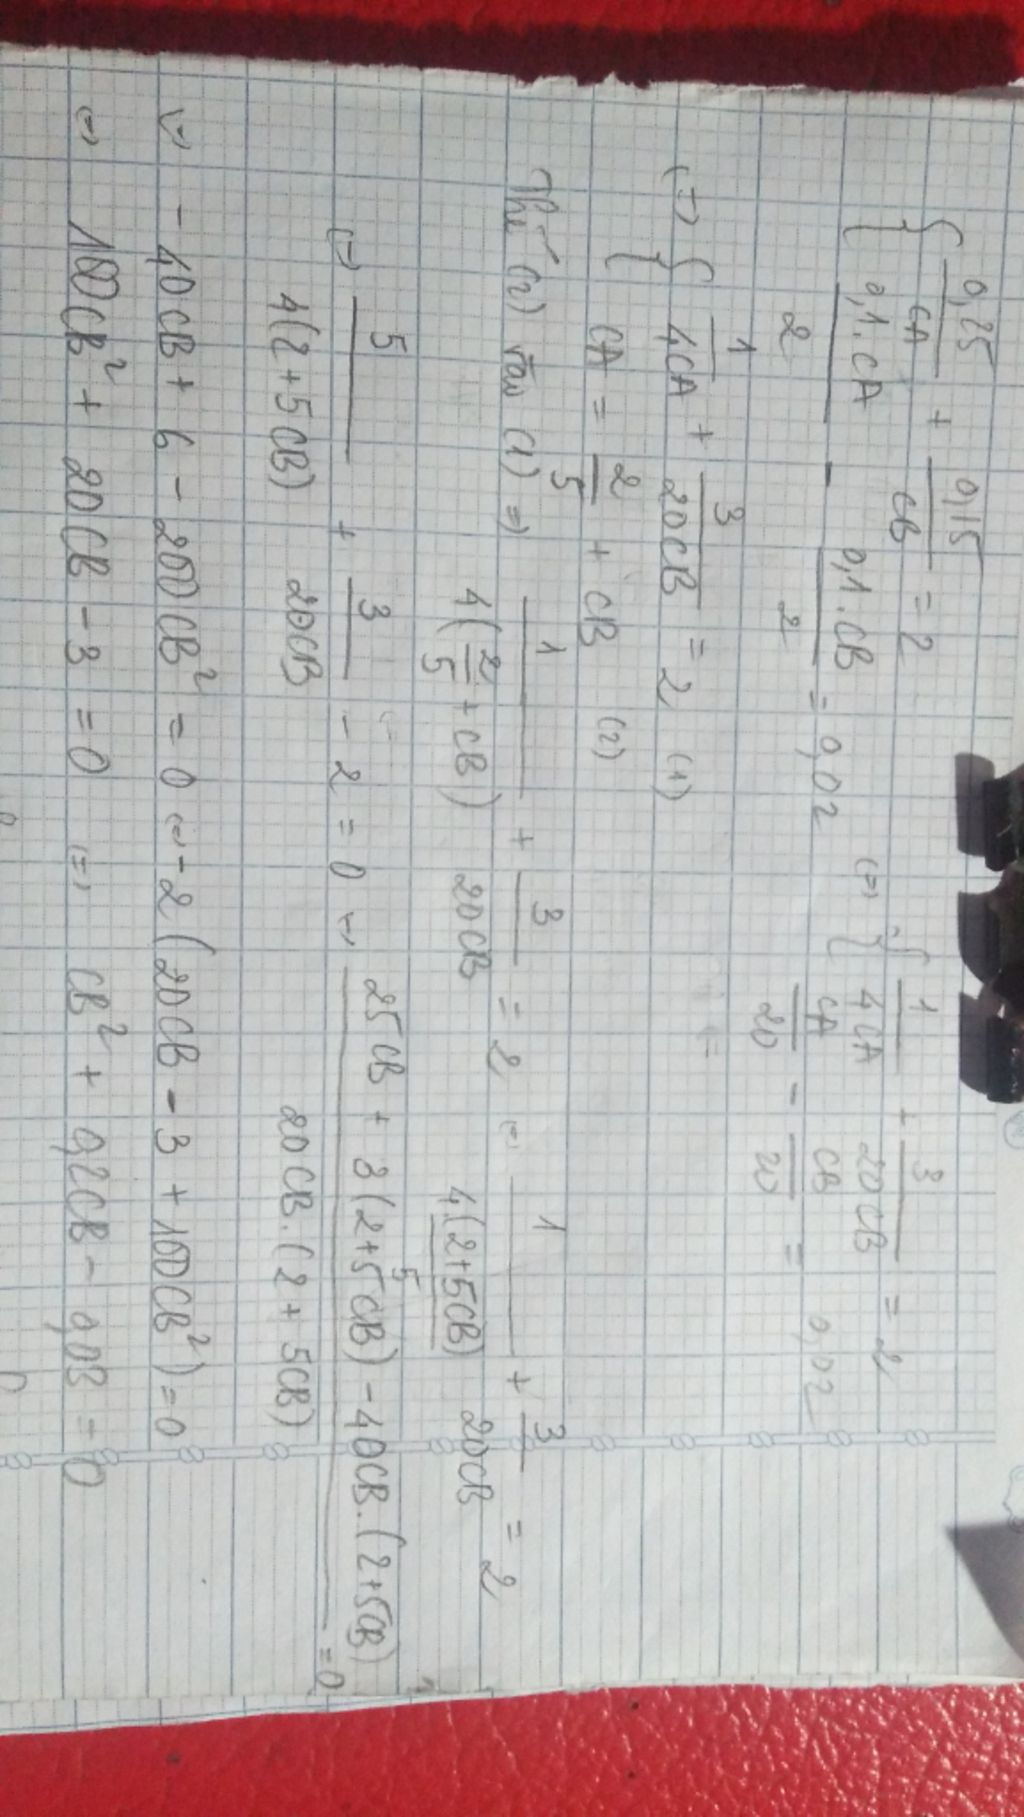 { 0,25/CA + 0,15/CB = 2 (=) { 1/4CA + 3/20CB = 2
0,1.CA/2 - 0,1.CB/2 = 0,02 CA/20 - CB/20 = 0,02
(=) { 1/4CA + 3/20CB = 2 (1)
CA = 2/5 + CB (2)
Thế (2) vào (1) => 1/4(2/5 + CB) + 3/20CB = 2 (=) 1/4(2+5CB)/5 + 3/20CB = 2
(=) 5/4(2+5CB) + 3/20CB - 2 = 0 (=) 25CB + 3(2+5CB) - 40CB.(2+5CB)/20CB.(2+5CB) = 0
(=) - 40CB + 6 - 200CB² = 0 (=) -2(20CB - 3 + 100CB²) = 0
(=) 100CB² + 20CB - 3 = 0 (=) CB² + 0,2CB - 0,03 = 0